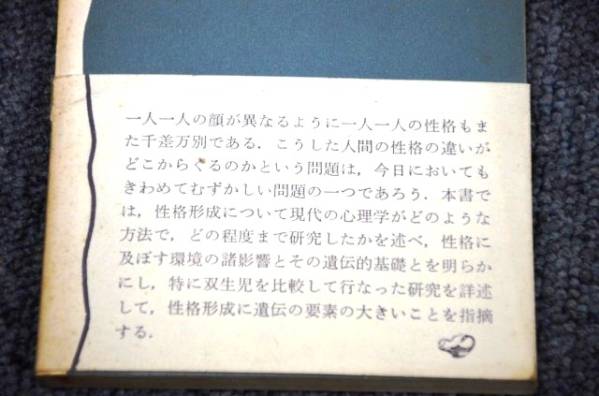 一人一人の顔が異なるように一人一人の性格もま
た千差万別である．こうした人間の性格の違いが
どこからくるのかという問題は，今日においても
きわめてむずかしい問題の一つであろう．本書で
は，性格形成について現代の心理学がどのような
方法で，どの程度まで研究したかを述べ，性格に
及ぼす環境の諸影響とその遺伝的基礎とを明らか
にし，特に双生児を比較して行なった研究を詳述
して，性格形成に遺伝の要素の大きいことを指摘
する．